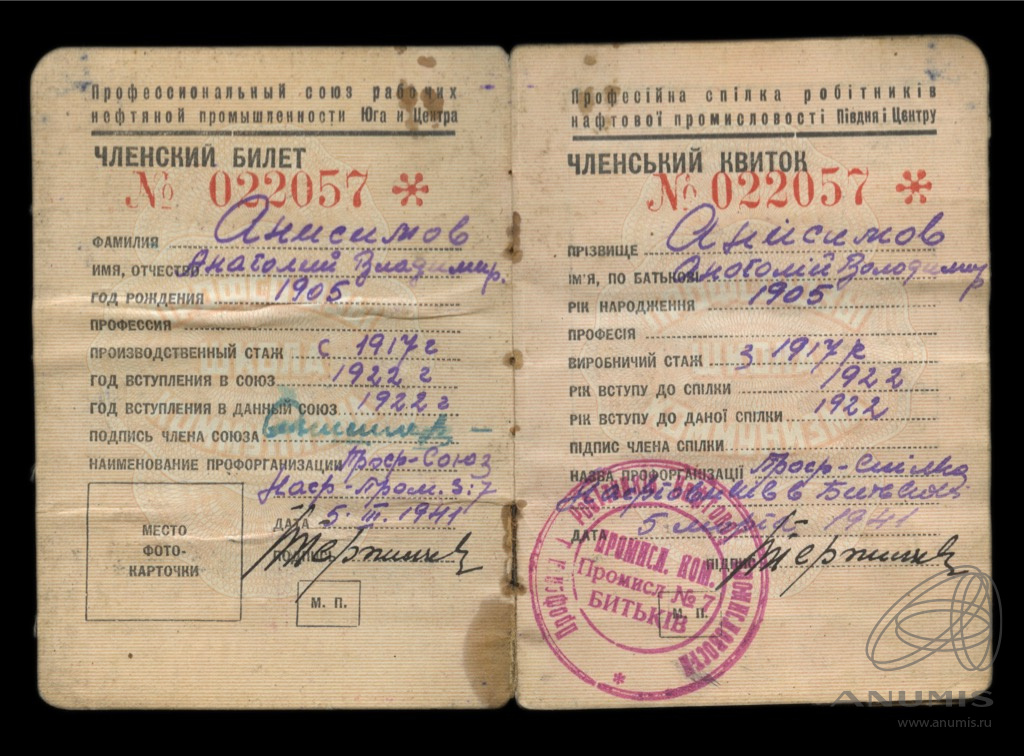 Профессиональный союз рабочих
нефтяной промышленности Юга и Центра
ЧЛЕНСКИЙ БИЛЕТ
№ 022057 *
ФАМИЛИЯ Анисимов
ИМЯ, ОТЧЕСТВО Анатолий Владимир.
ГОД РОЖДЕНИЯ 1905
ПРОФЕССИЯ
ПРОИЗВОДСТВЕННЫЙ СТАЖ с 1917 г
ГОД ВСТУПЛЕНИЯ В СОЮЗ 1922 г
ГОД ВСТУПЛЕНИЯ В ДАННЫЙ СОЮЗ 1922 г
ПОДПИСЬ ЧЛЕНА СОЮЗА
НАИМЕНОВАНИЕ ПРОФОРГАНИЗАЦИИ Проф-Союз
ДАТА 5. III. 1941
ПОДПИСЬ
МЕСТО
ФОТО-
КАРТОЧКИ
М. П.
Професійна спілка робітників
нафтової промисловості Півдня і Центру
ЧЛЕНСЬКИЙ КВИТОК
№ 022057 *
ПРІЗВИЩЕ Анісимов
ІМ'Я, ПО БАТЬКОВІ Анатолій Володимир
РІК НАРОДЖЕННЯ 1905
ПРОФЕСІЯ
ВИРОБНИЧИЙ СТАЖ з 1917 р
РІК ВСТУПУ ДО СПІЛКИ 1922
РІК ВСТУПУ ДО ДАНОЇ СПІЛКИ 1922
ПІДПИС ЧЛЕНА СПІЛКИ
НАЗВА ПРОФОРГАНІЗАЦІЇ Проф-Спілка
ДАТА 5 1941
ПІДПИС
М. П.
ПРОМИСЛ. КОМ.
Промисл № 7
БИТЬКІВ
*
ANUMIS
www.anumis.ru